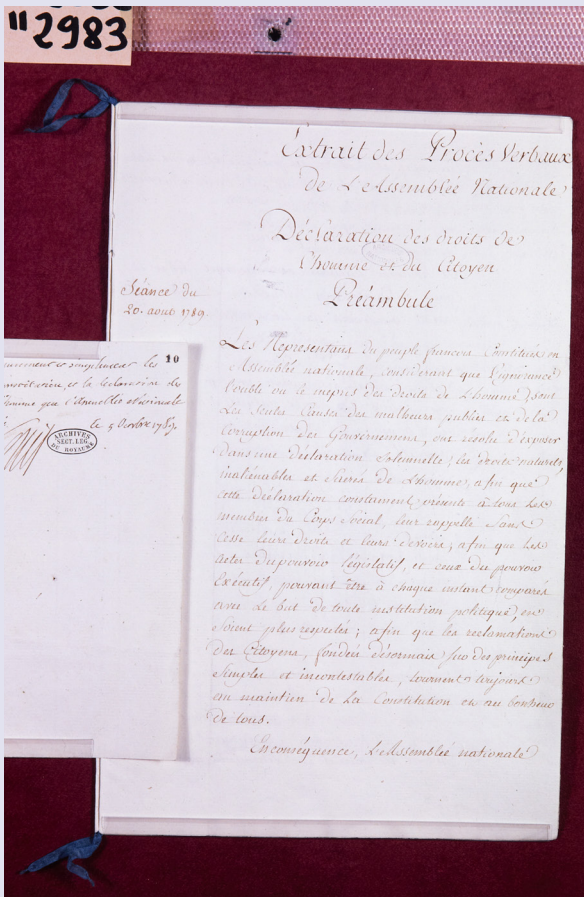 "2983
Extrait des Procès Verbaux
de L'Assemblée Nationale
Déclaration des droits de
l'homme et du Citoyen
Préambule
Séance du
20. aout 1789.
Les Représentans du peuple francois Constitués en
Assemblée nationale, considerant que L'ignorance
l'oubli ou le mépris des droits de L'homme sont
Les seules Causes des malheurs publics et de la
Corruption des Gouvernemens, ont résolu d'exposer
dans une déclaration Solemnelle, les droits naturels,
inaliénables et Sacrés de L'homme, afin que
cette déclaration constament présente à tous Les
membres du Corps Social, leur rappelle Sans
Cesse leurs droits et leurs devoirs; afin que Les
actes du pouvoir législatif, et ceux du pouvoir
Exécutif, pouvant être à chaque instant comparés
avec Le but de toute institution politique, en
Soient plus respectés; afin que les reclamations
des Citoyens, fondées désormais sur des principes
Simples et incontestables, tournent toujours
au maintien de La Constitution et au bonheur
de tous.
En conséquence, L'Assemblée nationale
10
et simplement les
et la declaration des
que l'assemblée
le 5 Octobre 1789
ARCHIVES
SECT. LEG.
DU ROYAUME